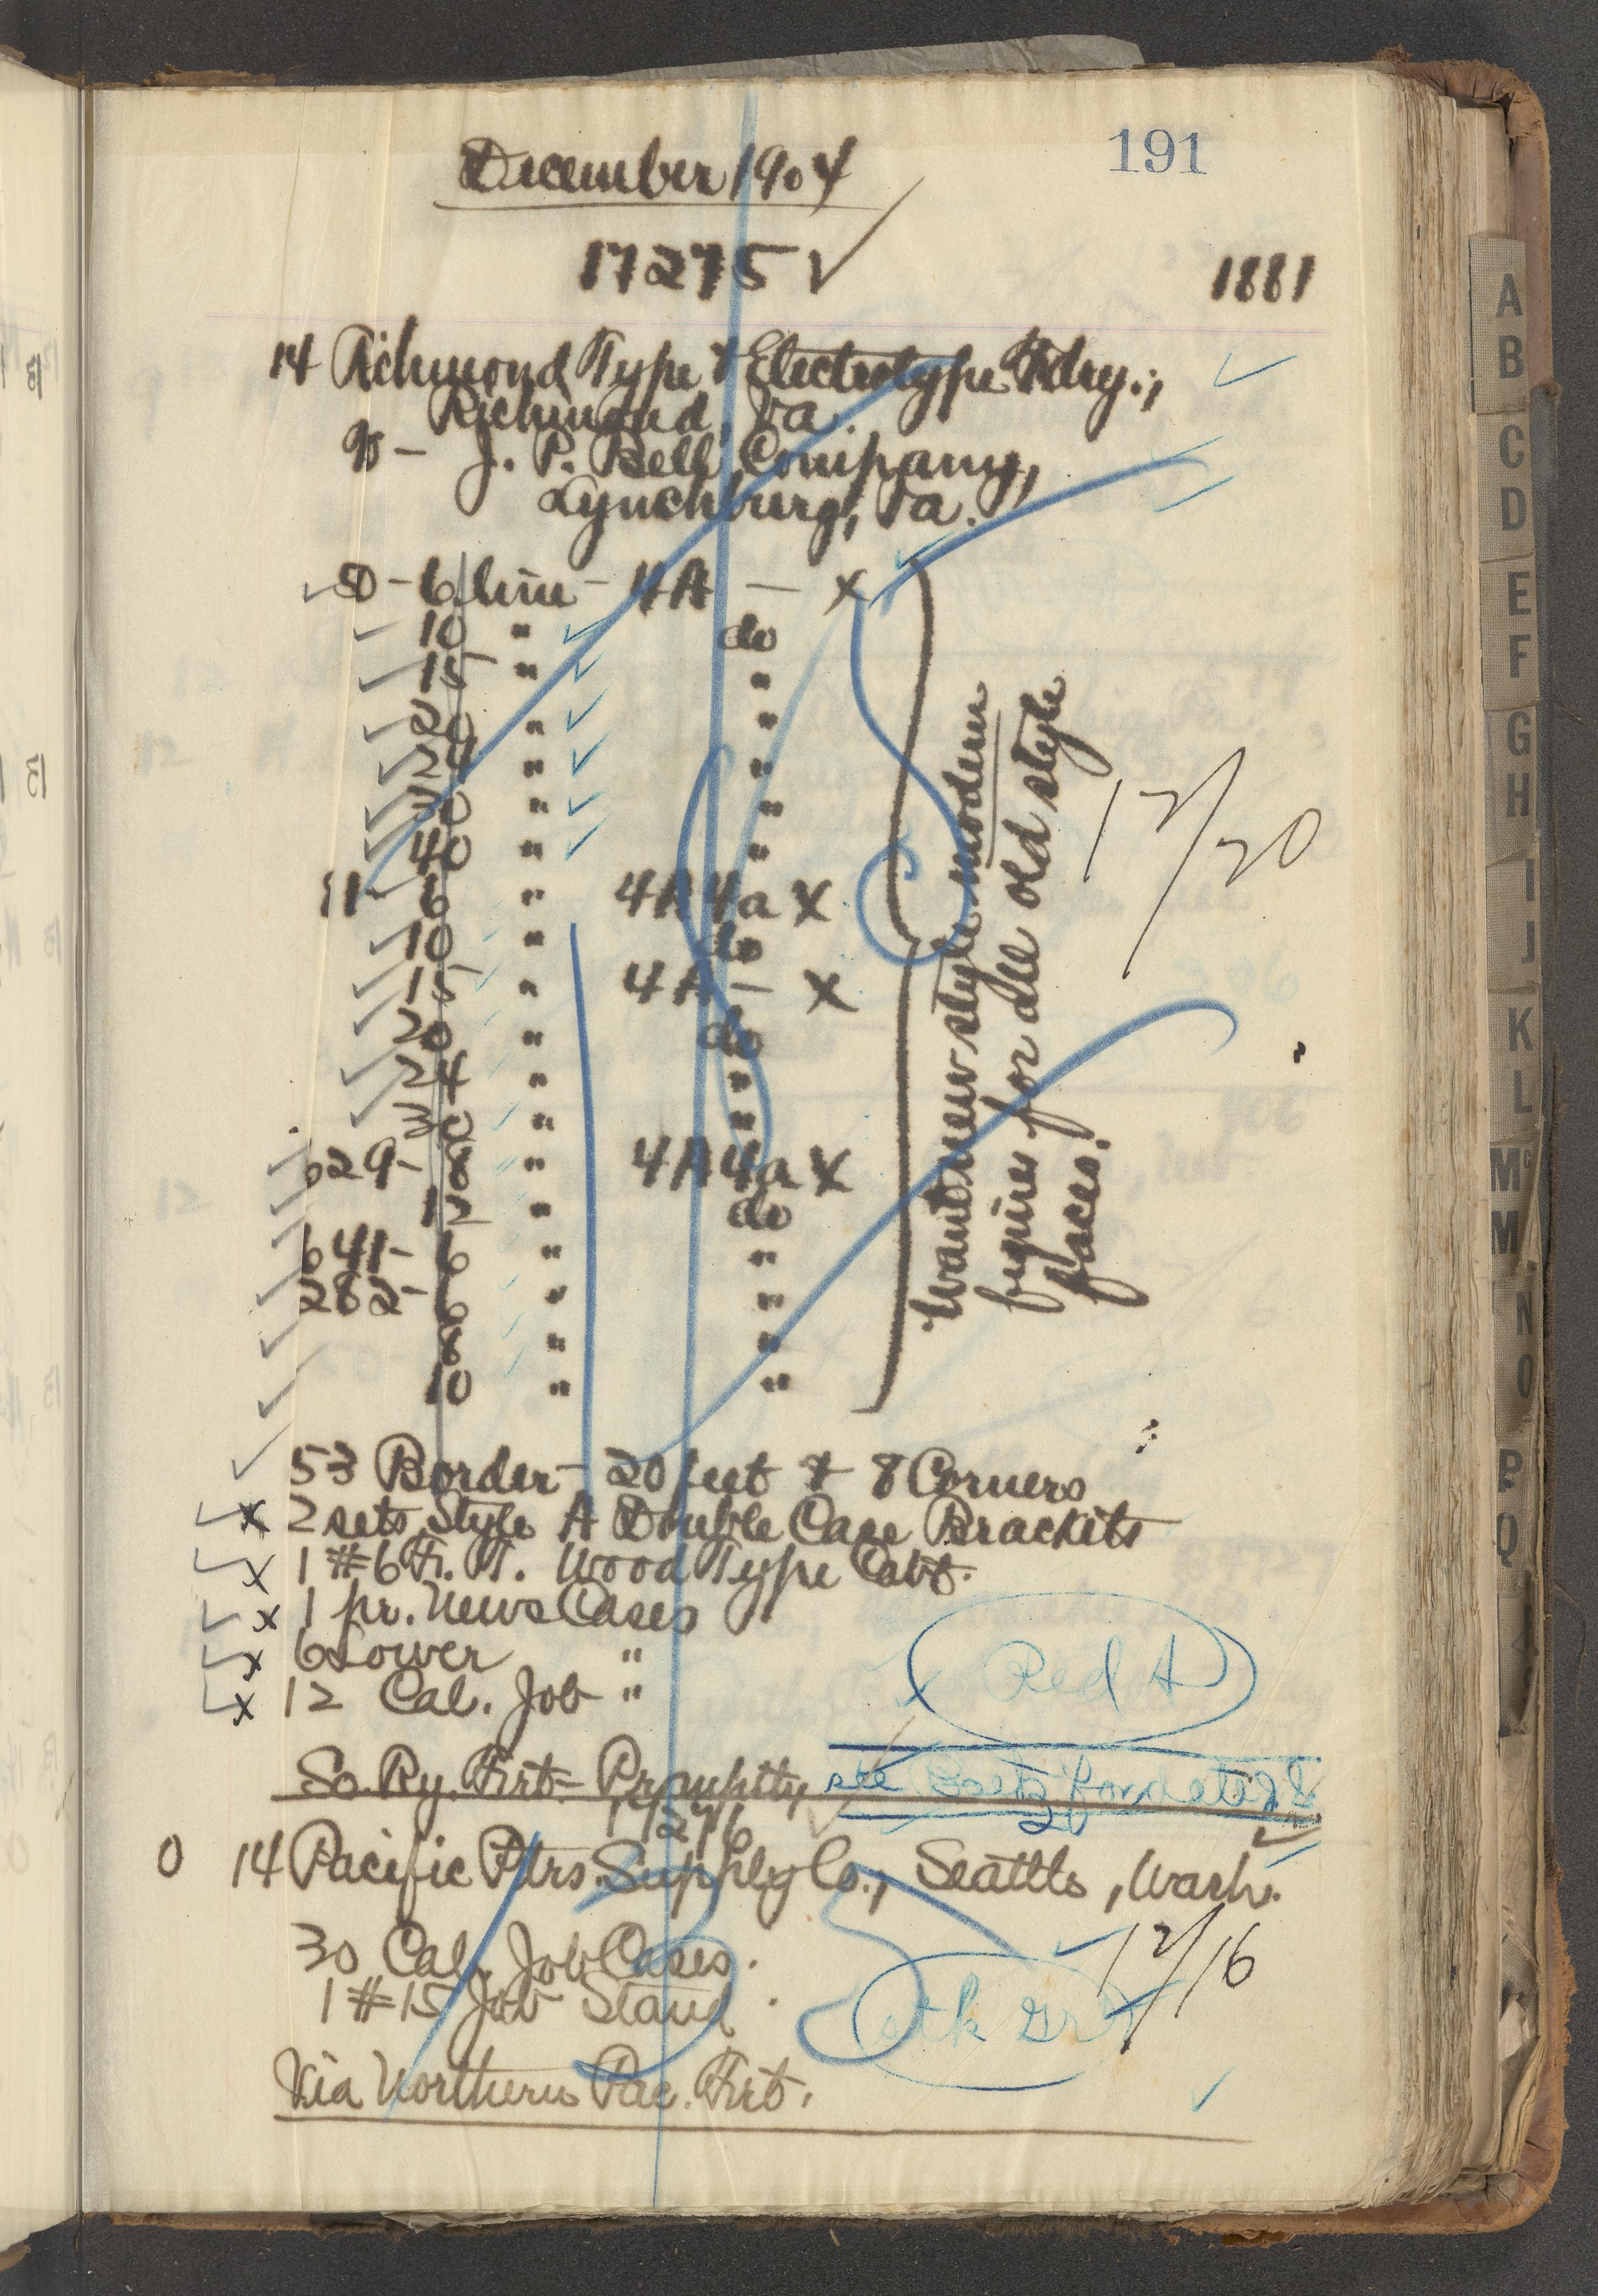 191
December 1904
17275 ✓
1881
14 Richmond Type & Electrotype Fdry.,
Richmond, Va.
J. P. Bell Company,
Lynchburg, Va.
50 - 6 line - 4A — X
10 " do
15 " "
20 " "
24 " "
30 " "
40 " "
11 6 " 4A 4a X
10 " do
15 " 4A — X
20 " do
24 " "
30 " "
629 - 8 " 4A 4a X
12 " do
641 - 6 " "
282 - 6 " "
8 " "
10 " "
Want new style modern
figures for all old style
faces.
12/20
53 Border - 20 feet & 8 Corners
x 2 sets Style A Double Case Brackets
x 1 #6 H. T. Wood Type Cabt.
x 1 pr. News Cases
x 6 Lower "
x 12 Cal. Job "
Red A
So. Ry. Frt - Promptly
17276
0 14 Pacific Ptrs. Supply Co., Seattle, Wash.
30 Cal. Job Cases.
1 #15 Job Stand.
12/16
Via Northern Pac. Frt.
A
B
C
D
E
F
G
H
I
J
K
L
Mc
M
N
O
P
Q